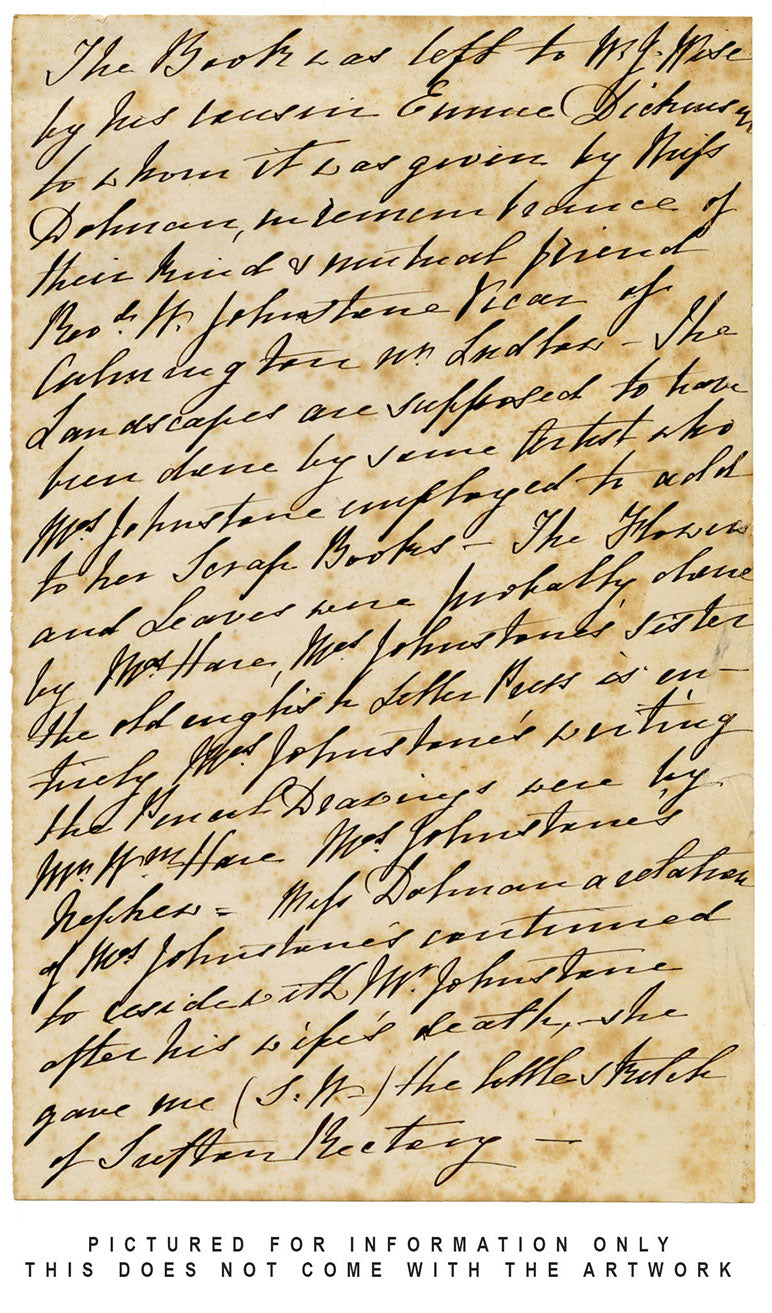 The Book was left to W. J. Wise
by his cousin Emma Dickinson
to whom it was given by Miss
Dolman, in remembrance of
their kind & mutual friend
Revd. W. Johnstone Vicar of
Culmington nr. Ludlow - The
Landscapes are supposed to have
been done by some Artist who
Mrs Johnstone employed to add
to her Scrap Books - The Flowers
and Leaves were probably done
by Mrs Hare, Mrs Johnstone's sister
the old english Letter Press is en-
tirely Mrs Johnstone's writing
the Pencil Drawings were by
Mr. Wm Hare Mrs Johnstone's
Nephew = Miss Dolman a relation
of Mrs Johnstone's continued
to reside with Mr. Johnstone
after his wife's death, - she
gave me (S. W-) the little sketch
of Sutton Rectory -
PICTURED FOR INFORMATION ONLY
THIS DOES NOT COME WITH THE ARTWORK